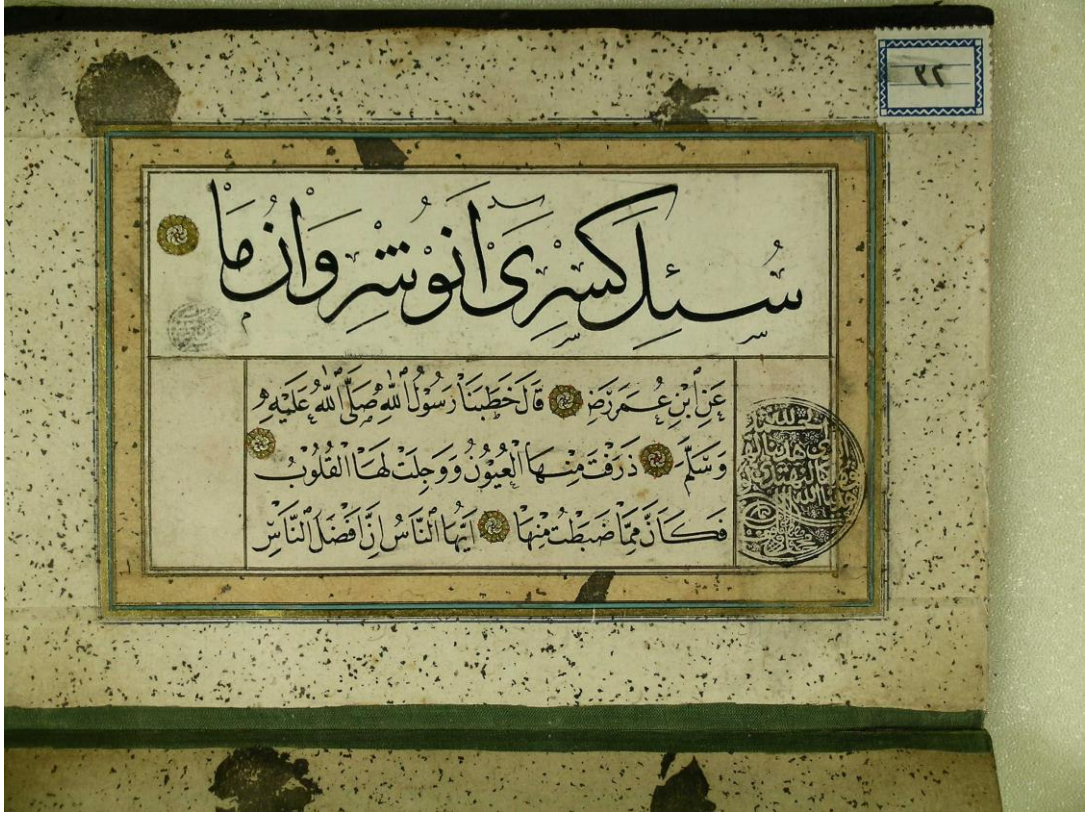 ٣٢
سُئِلَ كَسْرَى اَنُوْشِرْوَانُ مَا
عَنِ ابْنِ عُمَرَ رَضِ قَالَ خَطَبَنَا رَسُوْلُ اللّٰهِ صَلَّى اللّٰهُ عَلَيْهِ
وَسَلَّمَ ذَرَفَتْ مِنْهَا الْعُيُوْنُ وَوَجِلَتْ لَهَا الْقُلُوْبُ
فَكَانَ مِمَّا ضَبَطْتُ مِنْهَا اَيُّهَا النَّاسُ اِنَّ اَفْضَلَ النَّاسِ